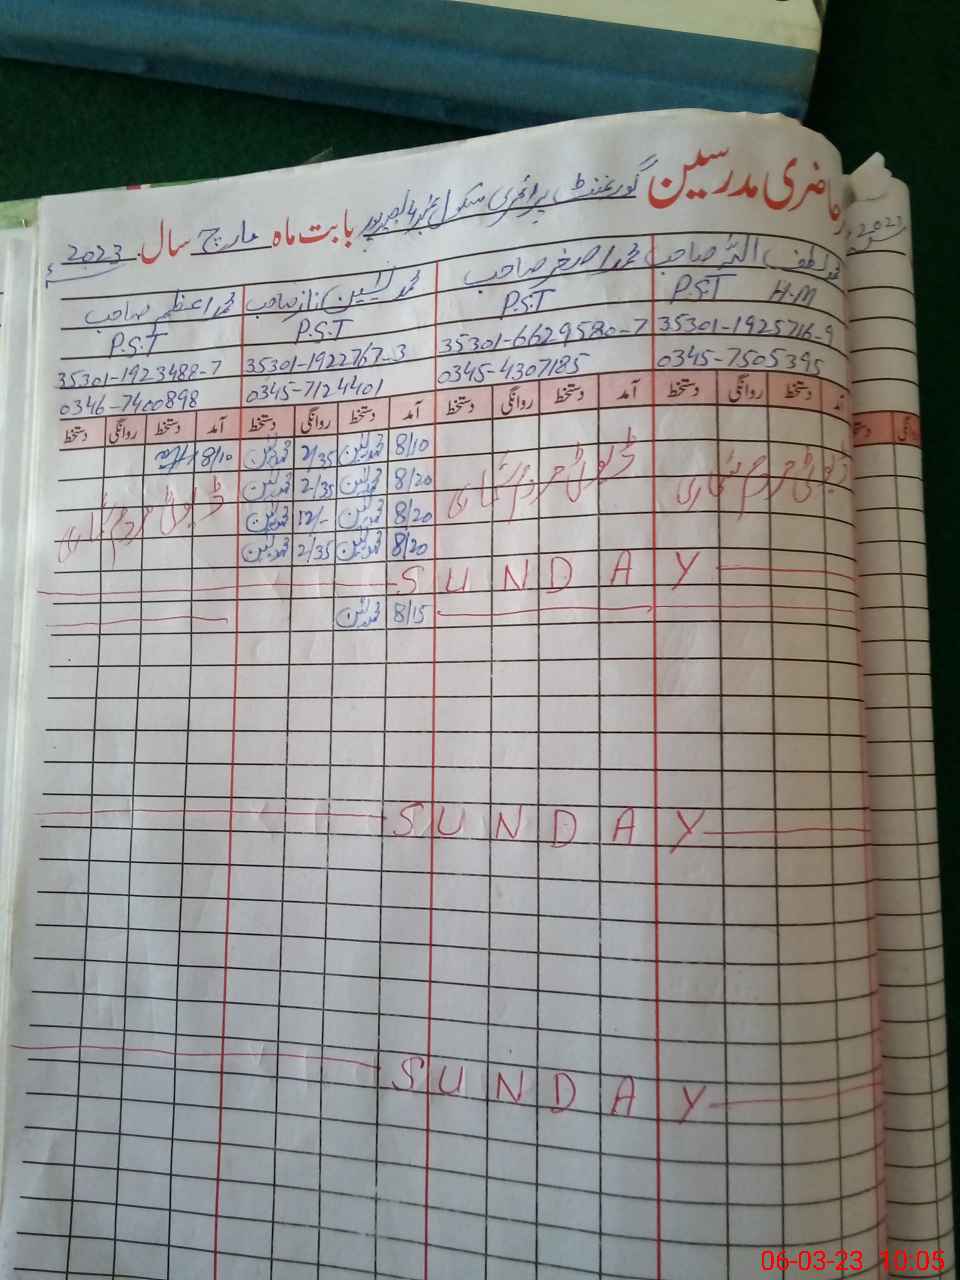 حاضری مدرسین گورنمنٹ پرائمری سکول نمبر 4 بصیرپور بابت ماہ مارچ سال 2023ء
محمد لطف اللہ صاحب محمد اصغر صاحب محمد یٰسین ناز صاحب محمد اعظم صاحب
H.M P.S.T P.S.T P.S.T P.S.T
35301-1925716-9 35301-6629580-7 35301-1922767-3 35301-1923488-7
0345-7505395 0345-4307185 0345-7124401 0346-7400898
آمد دستخط روانگی دستخط آمد دستخط روانگی دستخط آمد دستخط روانگی دستخط آمد دستخط روانگی دستخط
8/10 محمد یٰسین 2/35 محمد یٰسین 8/10
ڈیوٹی مردم شماری ڈیوٹی مردم شماری 8/20 محمد یٰسین 2/35 محمد یٰسین ڈیوٹی مردم شماری
8/20 محمد یٰسین 12/- محمد یٰسین
8/20 محمد یٰسین 2/35 محمد یٰسین
SUNDAY
8/15 محمد یٰسین
SUNDAY
SUNDAY
2023
06-03-23 10:05